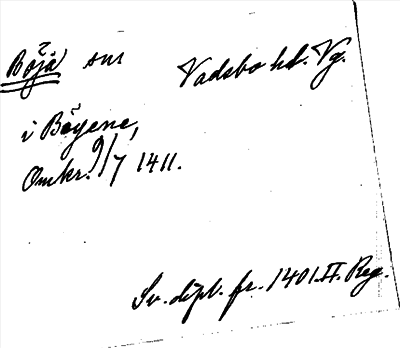 Böja sn Vadsbo hd. Vg.
i Bøyene,
Omkr. 9/7 1411.
Sv. dipl. fr. 1401. II. Reg.